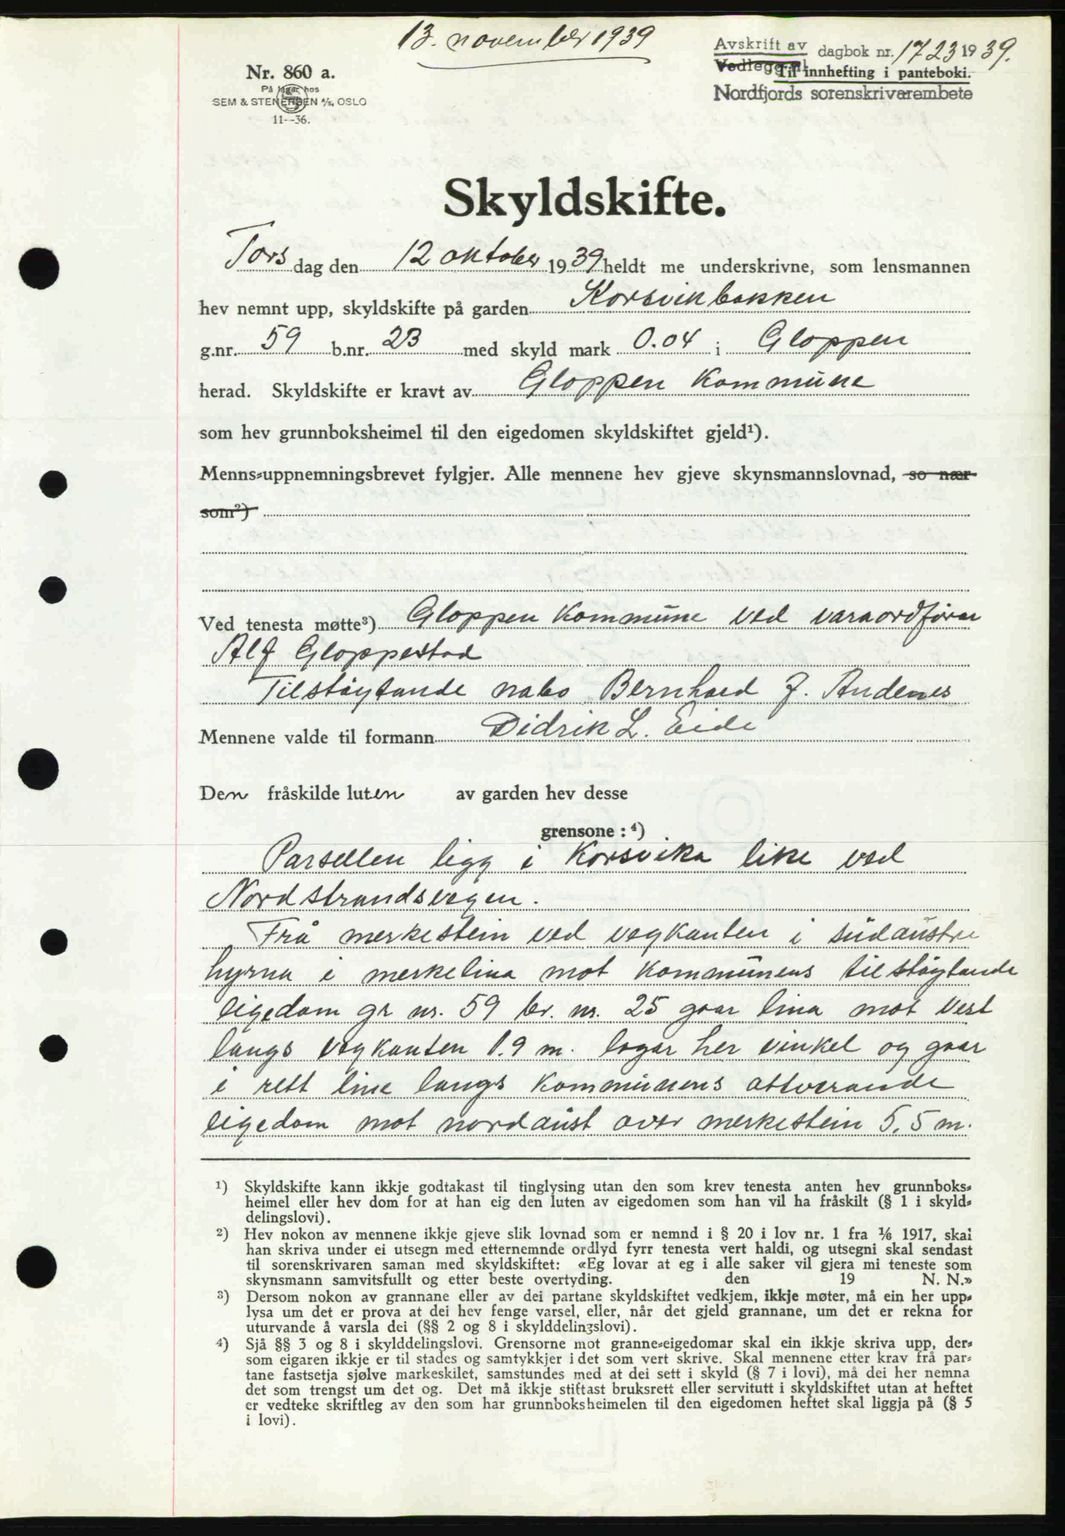 13. november 1939
Avskrift av dagbok nr. 1723 1939.
Vedlegg nr.
Til innhefting i panteboki.
Nordfjords sorenskrivarembete
Nr. 860 a.
På lager hos
SEM & STENERSEN A/S, OSLO
11--36.
Skyldskifte.
Tors dag den 12 oktober 1939 heldt me underskrivne, som lensmannen
hev nemnt upp, skyldskifte på garden Korsvikbakken
g.nr. 59 b.nr. 23 med skyld mark 0.04 i Gloppen
herad. Skyldskifte er kravt av Gloppen Kommune
som hev grunnboksheimel til den eigedomen skyldskiftet gjeld¹).
Menns-uppnemningsbrevet fylgjer. Alle mennene hev gjeve skynsmannslovnad, so nær
som²)
Ved tenesta møtte³) Gloppen Kommune ved varaordførar
Alf Gloppestad
Tilstøytande nabo Bernhard J. Andenes
Mennene valde til formann Didrik L. Eide
Den fråskilde luten av garden hev desse
grensone : ⁴)
Parsellen ligg i Korsvika like ved
Nordstrandsvegen.
Frå merkestein ved vegkanten i südaustre
hyrna i merkelina mot Kommunens tilstøytande
eigedom gr nr. 59 br. nr. 25 gaar lina mot vest
langs vegkanten 1.9 m. lagar her vinkel og gaar
i rett line langs Kommunens attverande
eigedom mot nordaust over merkestein 5,5 m.
¹) Skyldskifte kann ikkje godtakast til tinglysing utan den som krev tenesta anten hev grunnboks-
heimel eller hev dom for at han eig den luten av eigedomen som han vil ha fråskilt (§ 1 i skyld-
delingslovi).
²) Hev nokon av mennene ikkje gjeve slik lovnad som er nemnd i § 20 i lov nr. 1 fra 1/6 1917, skal
han skriva under ei utsegn med etternemnde ordlyd fyrr tenesta vert haldi, og utsegni skal sendast
til sorenskrivaren saman med skyldskiftet: «Eg lovar at eg i alle saker vil gjera mi teneste som
skynsmann samvitsfullt og etter beste overtyding. den 19 N. N.»
³) Dersom nokon av grannane eller av dei partane skyldskiftet vedkjem, ikkje møter, må ein her upp-
lysa um det er prova at dei hev fenge varsel, eller, når det gjeld grannane, um det er rekna for
uturvande å varsla dei (§§ 2 og 8 i skylddelingslovi).
⁴) Sjå §§ 3 og 8 i skylddelingslovi. Grensorne mot granne-eigedomar skal ein ikkje skriva upp, der-
som eigaren ikkje er til stades og samtykkjer i det som vert skrive. Skal mennene etter krav frå par-
tane fastsetja sjølve markeskilet, samstundes med at dei sett i skyld (§ 7 i lovi), må dei her nemna
det som trengst um det og. Det må ikkje stiftast bruksrett eller servitutt i skyldskiftet utan at heftet
er vedteke skriftleg av den som har grunnboksheimelen til den eigedomen heftet skal liggja på (§ 5
i lovi).